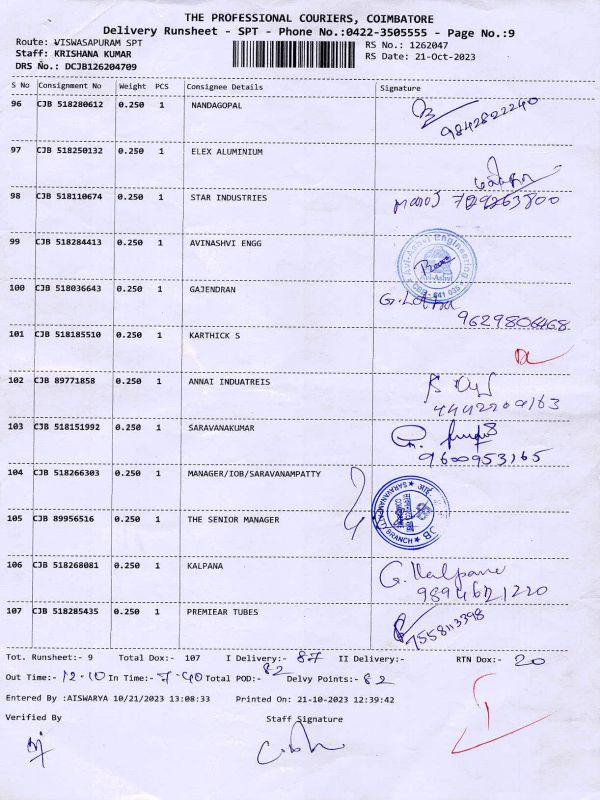 THE PROFESSIONAL COURIERS, COIMBATORE
Delivery Runsheet - SPT - Phone No.:0422-3505555 - Page No.:9
Route: VISWASAPURAM SPT RS No.: 1262047
Staff: KRISHANA KUMAR RS Date: 21-Oct-2023
DRS No.: DCJB126204709
S No Consignment No Weight PCS Consignee Details Signature
96 CJB 518280612 0.250 1 NANDAGOPAL
9842822240
97 CJB 518250132 0.250 1 ELEX ALUMINIUM
98 CJB 518110674 0.250 1 STAR INDUSTRIES
99 CJB 518284413 0.250 1 AVINASHVI ENGG
Avi-Ashvi Engineering
Avi-Ashvi
CBE - 641 035
100 CJB 518036643 0.250 1 GAJENDRAN G. Latha
9629806468
101 CJB 518185510 0.250 1 KARTHICK S
102 CJB 89771858 0.250 1 ANNAI INDUATREIS
103 CJB 518151992 0.250 1 SARAVANAKUMAR
9600953165
104 CJB 518266303 0.250 1 MANAGER/IOB/SARAVANAMPATTY
SARAVANAMPATTY BRANCH
105 CJB 89956516 0.250 1 THE SENIOR MANAGER
106 CJB 518268081 0.250 1 KALPANA G. Kalpana
107 CJB 518285435 0.250 1 PREMIEAR TUBES
7558113398
Tot. Runsheet:- 9 Total Dox:- 107 I Delivery:- 87 II Delivery:- RTN Dox:- 20
Out Time:- 12.10 In Time:- 7.40 Total POD:- 82 Delvy Points:- 82
Entered By :AISWARYA 10/21/2023 13:08:33 Printed On: 21-10-2023 12:39:42
Verified By Staff Signature